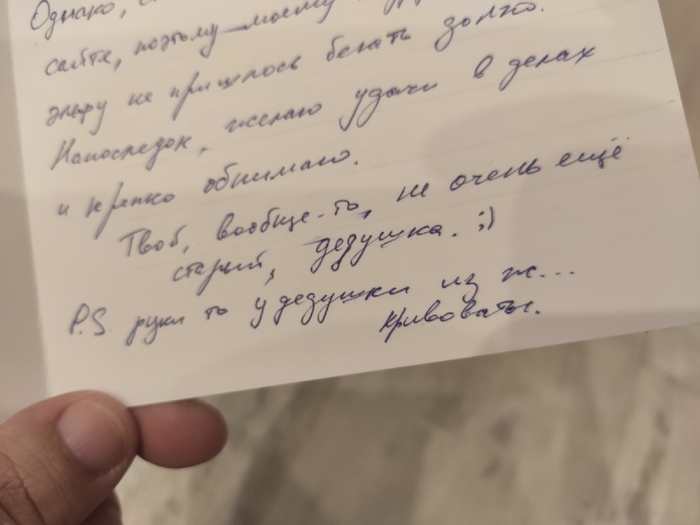 Однако,
сайта, поэтому моему
эльфу не пришлось бегать долго.
Напоследок, желаю удачи в делах
и крепко обнимаю.
Твой, вообще-то, не очень ещё
старый, дедушка. ;)
P.S. руки то у дедушки из ж...
кривоваты.